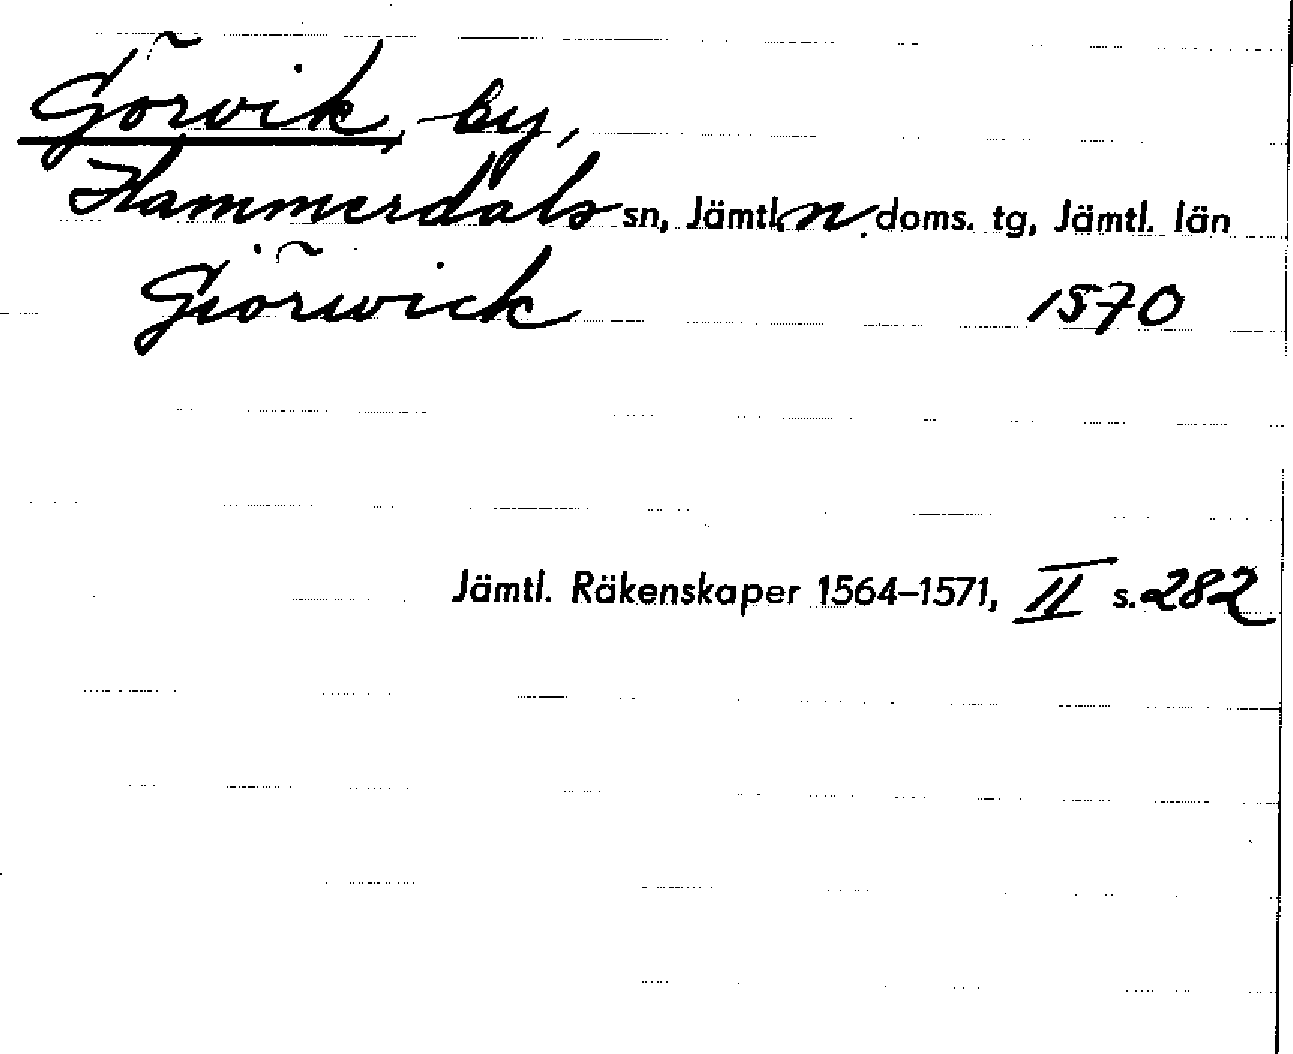 Görvik, by,
Hammerdals sn, Jämtl. n. doms. tg, Jämtl. län
Giörwick 1570
Jämtl. Räkenskaper 1564–1571, II s. 282